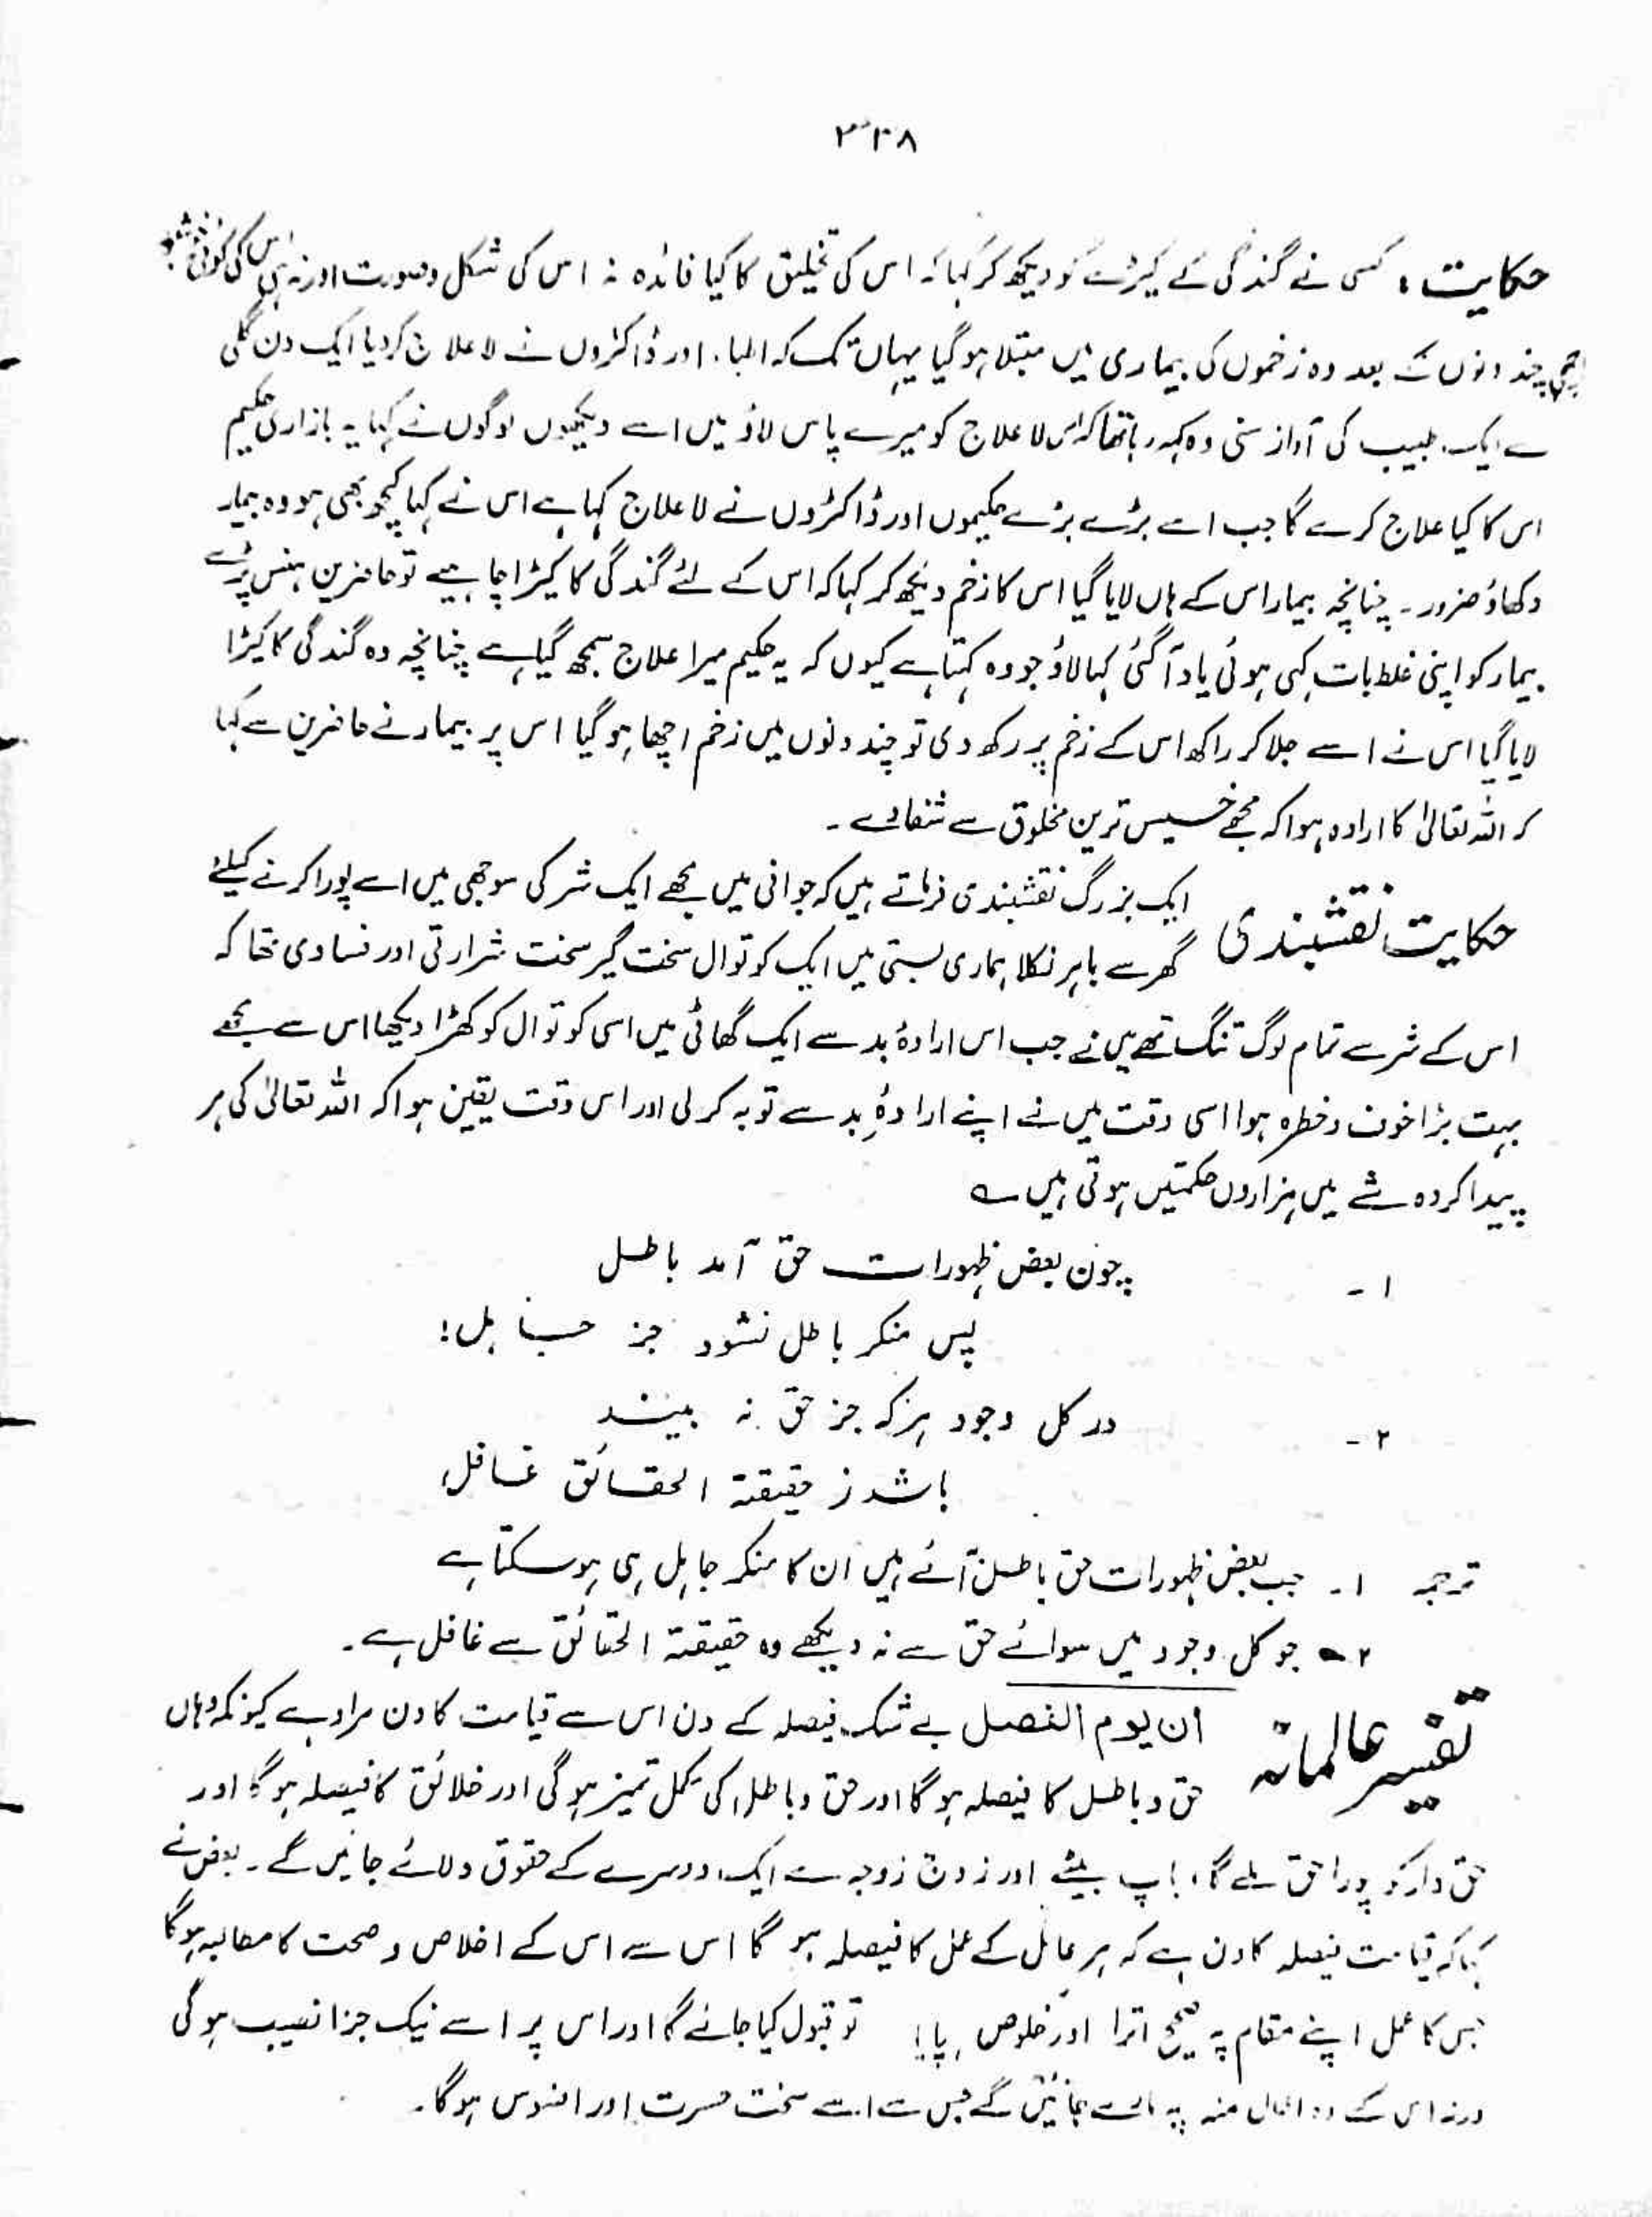 ۳۳۸
حکایت : کسی نے گندگی کے کیڑے کو دیکھ کر کہا کہ اس کی تخلیق کا کیا فائدہ نہ اس کی شکل و صورت اور نہ ہی اس کی کوئی خوشبو
اچھی چند دنوں کے بعد وہ زخموں کی بیماری میں مبتلا ہو گیا یہاں تک کہ اطباء اور ڈاکٹروں نے لا علاج کر دیا ایک دن گلی
سے ایک طبیب کی آواز سنی وہ کہہ رہا تھا کہ اس لا علاج کو میرے پاس لاؤ میں اسے دیکھوں لوگوں نے کہا یہ بازاری حکیم
اس کا کیا علاج کرے گا جب اسے بڑے بڑے حکیموں اور ڈاکٹروں نے لا علاج کہا ہے اس نے کہا کچھ بھی ہو وہ بیمار
دکھاؤ ضرور ۔ چنانچہ بیمار اس کے ہاں لایا گیا اس کا زخم دیکھ کر کہا کہ اس کے لئے گندگی کا کیڑا چاہیے تو حاضرین ہنس پڑے
بیمار کو اپنی غلط بات کہی ہوئی یاد آ گئی کہا لاؤ جو وہ کہتا ہے کیوں کہ یہ حکیم میرا علاج سمجھ گیا ہے چنانچہ وہ گندگی کا کیڑا
لایا گیا اس نے اسے جلا کر راکھ اس کے زخم پر رکھ دی تو چند دنوں میں زخم اچھا ہو گیا اس پر بیمار نے حاضرین سے کہا
کہ اللہ تعالیٰ کا ارادہ ہوا کہ مجھے خسیس ترین مخلوق سے شفا دے ۔
حکایت نقشبندی ایک بزرگ نقشبندی فرماتے ہیں کہ جوانی میں مجھے ایک شر کی سوجھی میں اسے پورا کرنے کیلئے
گھر سے باہر نکلا ہماری بستی میں ایک کوتوال سخت گیر سخت شرارتی اور فسادی تھا کہ
اس کے شر سے تمام لوگ تنگ تھے میں نے جب اس ارادۂ بد سے ایک گھاٹی میں اسی کوتوال کو کھڑا دیکھا اس سے مجھے
بہت بڑا خوف و خطرہ ہوا اسی وقت میں نے اپنے ارادۂِ بد سے توبہ کر لی اور اس وقت یقین ہوا کہ اللہ تعالیٰ کی ہر
پیدا کردہ شے میں ہزاروں حکمتیں ہوتی ہیں ؎
۱ - چون بعض ظہورات حق آمد باطل
پس منکر باطل نشود جز جاہل!
۲ - در کل وجود ہر کہ جز حق نہ بیند
باشد ز حقیقۃ الحقائق غافل
ترجمہ ۱ - جب بعض ظہورات حق باطل آئے ہیں ان کا منکر جاہل ہی ہو سکتا ہے
۲ - جو کل وجود میں سوائے حق سے نہ دیکھے وہ حقیقۃ الحقائق سے غافل ہے ۔
تفسیر عالمانہ ان یوم الفصل بے شک فیصلہ کے دن اس سے قیامت کا دن مراد ہے کیونکہ وہاں
حق و باطل کا فیصلہ ہو گا اور حق و باطل کی مکمل تمیز ہو گی اور خلائق کا فیصلہ ہو گا اور
حق دار کو پورا حق ملے گا ، باپ بیٹے اور زوج زوجہ سے ایک دوسرے کے حقوق دلائے جائیں گے ۔ بعض نے
کہا کہ قیامت فیصلہ کا دن ہے کہ ہر عامل کے عمل کا فیصلہ ہو گا اس سے اس کے اخلاص و صحت کا مطالبہ ہو گا
جس کا عمل اپنے مقام پہ صحیح اترا اور خلوص پایا تو قبول کیا جائے گا اور اس پر اسے نیک جزا نصیب ہو گی
ورنہ اس کے وہ اعمال منہ پہ مارے جائیں گے جس سے اسے سخت حسرت اور افسوس ہو گا ۔